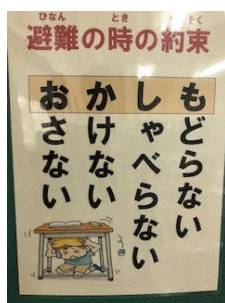 ひなん とき く
避難の時の約束
おさない
かけない
しゃべらない
もどらない